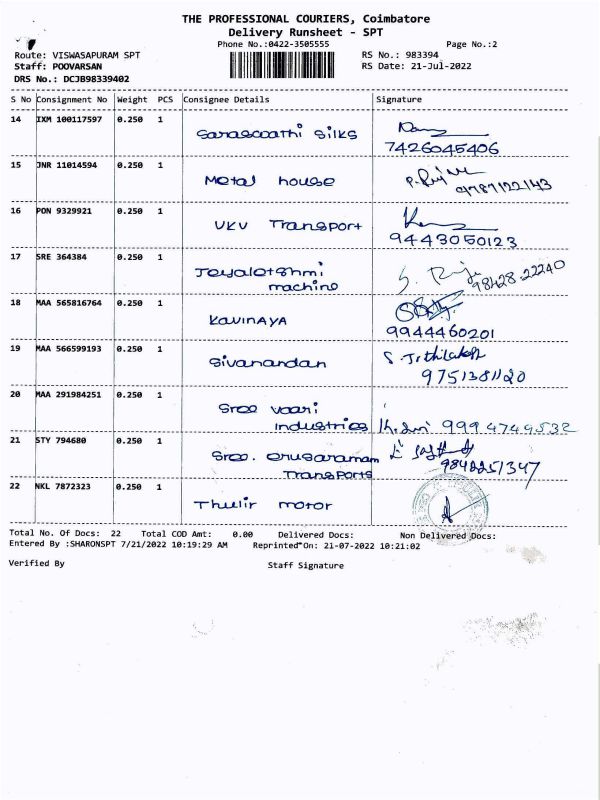 THE PROFESSIONAL COURIERS, Coimbatore
Delivery Runsheet - SPT
Phone No.:0422-3505555 Page No.:2
Route: VISWASAPURAM SPT RS No.: 983394
Staff: POOVARSAN RS Date: 21-Jul-2022
DRS No.: DCJB98339402
S No Consignment No Weight PCS Consignee Details Signature
14 IXM 100117597 0.250 1
Saraswathi Silks
7426045406
15 JNR 11014594 0.250 1
Metal house
9787122143
16 PON 9329921 0.250 1
UKV Transport
9443050123
17 SRE 364384 0.250 1
Jeyalotshmi
machine 98428-22240
18 MAA 565816764 0.250 1
KAVINAYA
9944460201
19 MAA 566599193 0.250 1
Sivanandan
9751381120
20 MAA 291984251 0.250 1
Sree vaari
industries 9994744532
21 STY 794680 0.250 1
Sree.
Transports 9842251347
22 NKL 7872323 0.250 1
Thulir motor
Total No. Of Docs: 22 Total COD Amt: 0.00 Delivered Docs: Non Delivered Docs:
Entered By :SHARONSPT 7/21/2022 10:19:29 AM Reprinted On: 21-07-2022 10:21:02
Verified By Staff Signature